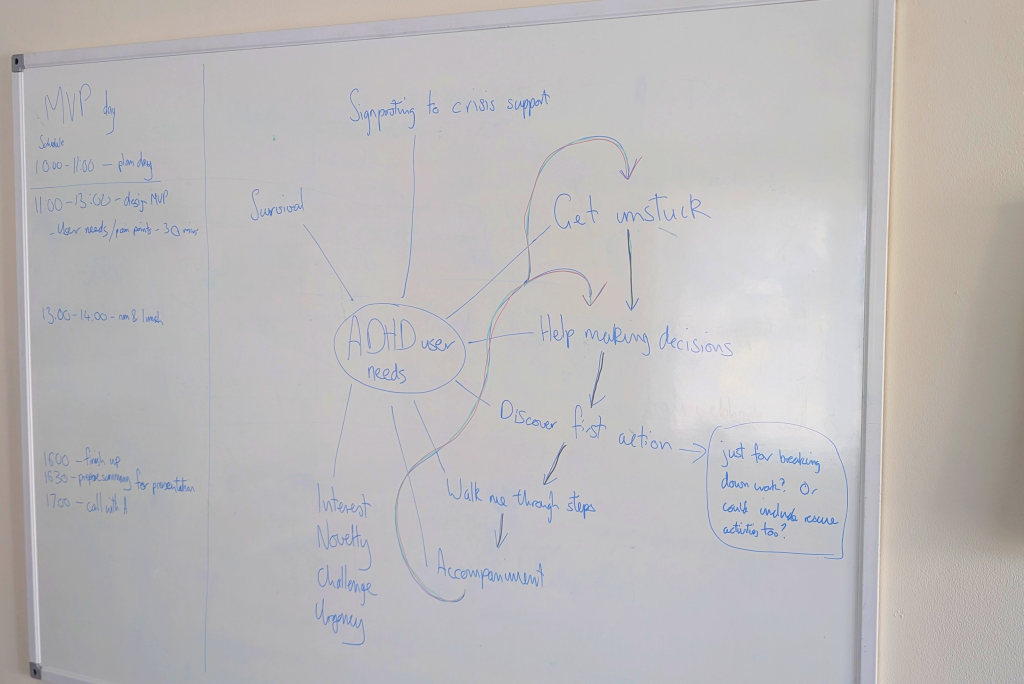 MVP day
Schedule
10:00-11:00 - plan day
11:00-13:00 - design MVP
- User needs/pain points - 30 mins
13.00-14.00 - & lunch
1600 - finish up
1630 - summary for presentation
1700 - call with A
Signposting to crisis support
Survival
Get unstuck
ADHD user
needs
Help making decisions
Discover first action
just for breaking
down work? Or
could include rescue
activities too?
Walk me through steps
Accompaniment
Interest
Novelty
Challenge
Urgency